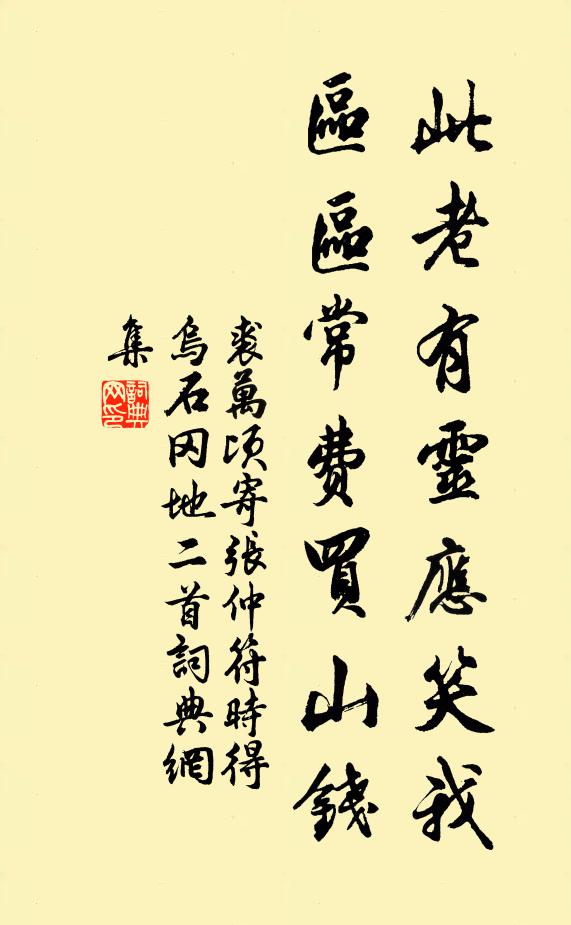 此老有靈應笑我
區區常費買山錢
裘萬頃寄張仲符時得
烏石冈地二首詞典網
集
詞典
网印